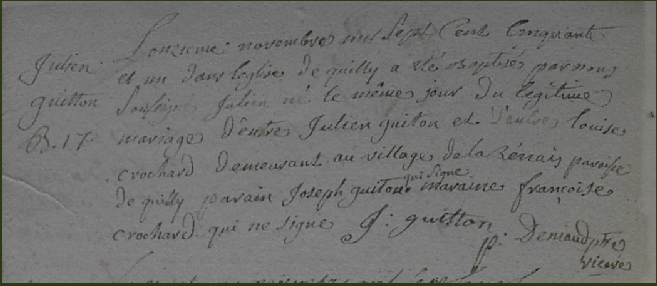 Julien
guitton
B. 17.
L'onzieme novembre mil sept Cent Cinquante
et un dans leglise de quilly a eté baptisé par nous
soussigné Julien né le même jour du légitime
mariage d'entre Julien guiton et d'entre louise
crochard demeurant au village de la paroisse
de quilly parain Joseph guiton qui signe maraine françoise
crochard qui ne signe J: guitton
p. Deniaud ptre
vicaire